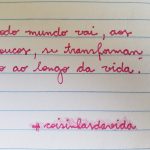 odo mundo vai, aos
oucos, se transforman
o ao longo da vida.
#coisinhasdavida